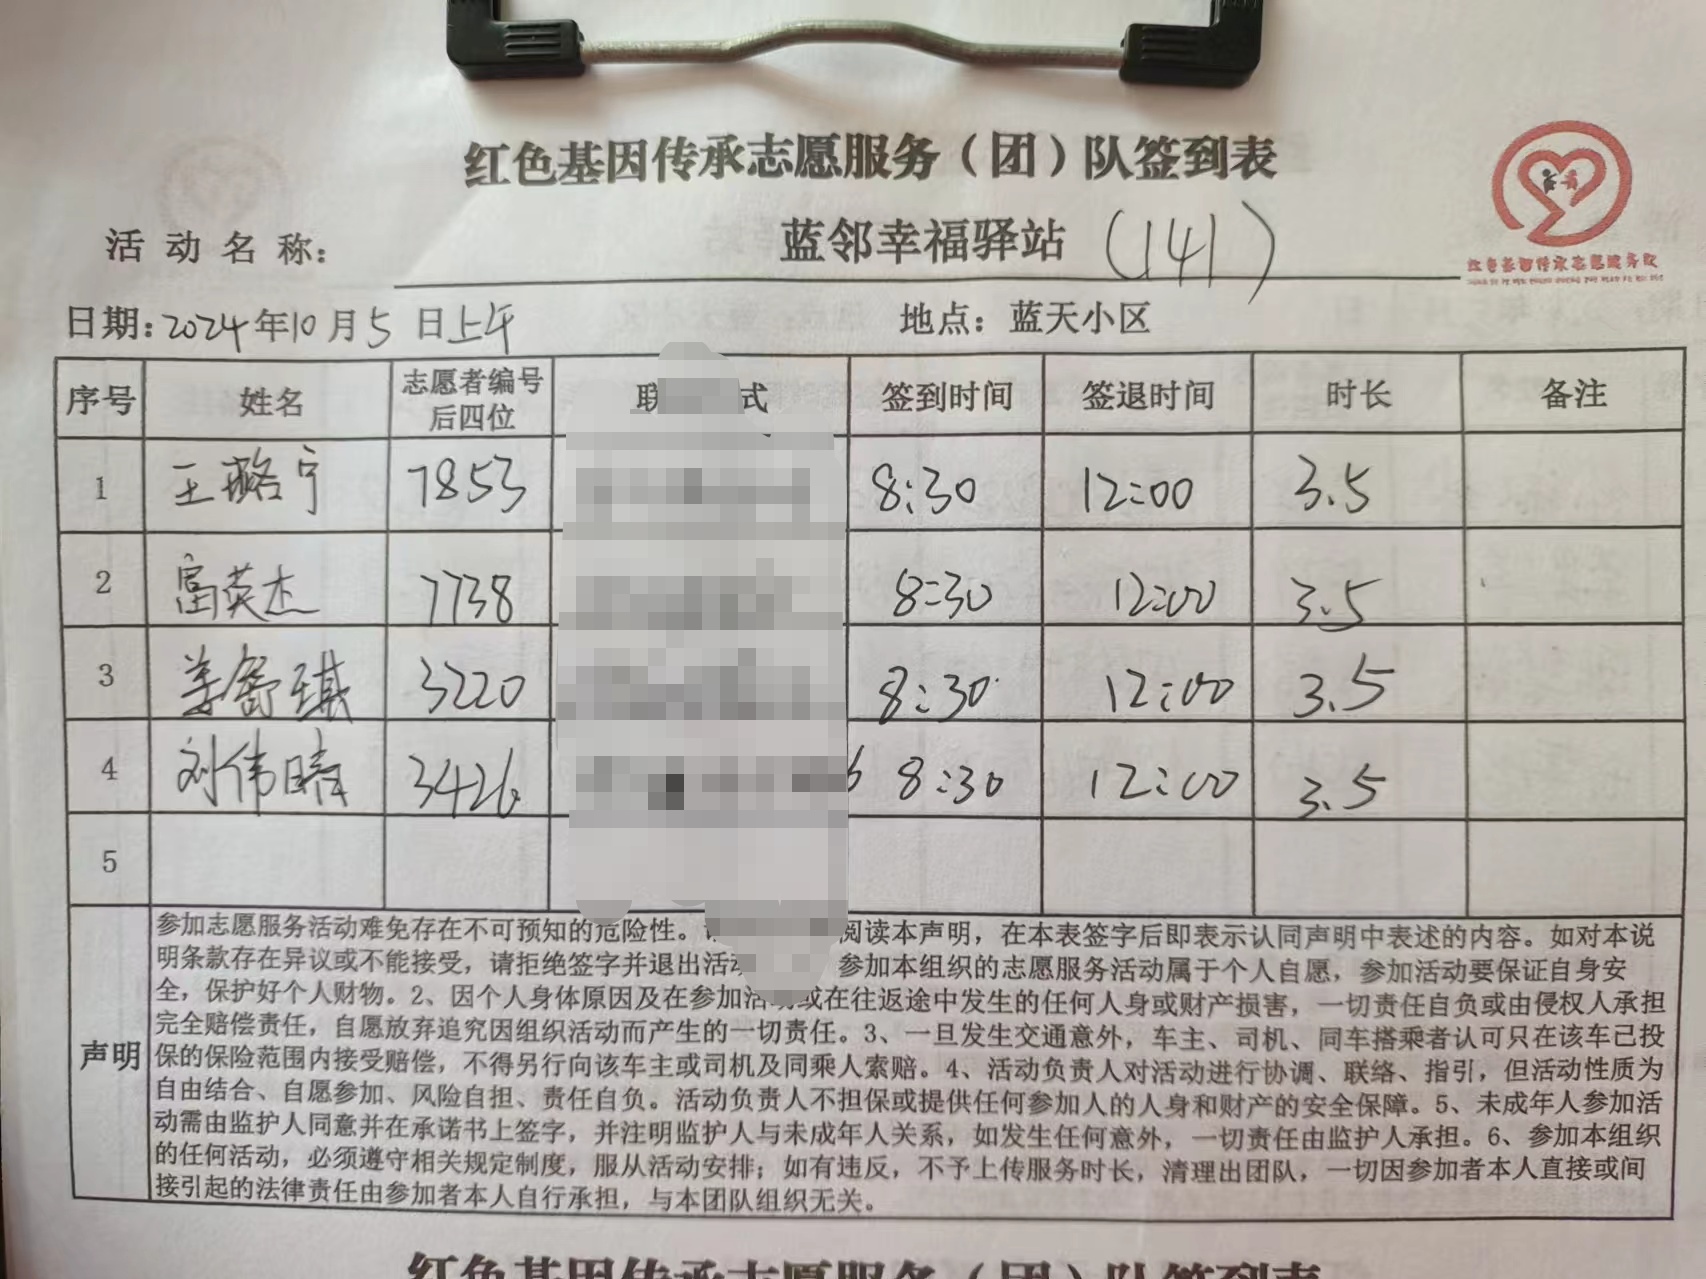 红色基因传承志愿服务（团）队签到表
活动名称： 蓝邻幸福驿站 (141)
日期：2024年10月5日上午 地点：蓝天小区
序号 姓名 志愿者编号后四位 联 式 签到时间 签退时间 时长 备注
1 王璐宁 7853 8:30 12:00 3.5
2 富英杰 7738 8:30 12:00 3.5
3 姜舒琪 3220 8:30 12:00 3.5
4 刘伟晴 3426 6 8:30 12:00 3.5
5
声明
参加志愿服务活动难免存在不可预知的危险性。 阅读本声明，在本表签字后即表示认同声明中表述的内容。如对本说
明条款存在异议或不能接受，请拒绝签字并退出活动 参加本组织的志愿服务活动属于个人自愿，参加活动要保证自身安
全，保护好个人财物。2、因个人身体原因及在参加活动或在往返途中发生的任何人身或财产损害，一切责任自负或由侵权人承担
完全赔偿责任，自愿放弃追究因组织活动而产生的一切责任。3、一旦发生交通意外，车主、司机、同车搭乘者认可只在该车已投
保的保险范围内接受赔偿，不得另行向该车主或司机及同乘人索赔。4、活动负责人对活动进行协调、联络、指引，但活动性质为
自由结合、自愿参加、风险自担、责任自负。活动负责人不担保或提供任何参加人的人身和财产的安全保障。5、未成年人参加活
动需由监护人同意并在承诺书上签字，并注明监护人与未成年人关系，如发生任何意外，一切责任由监护人承担。6、参加本组织
的任何活动，必须遵守相关规定制度，服从活动安排；如有违反，不予上传服务时长，清理出团队，一切因参加者本人直接或间
接引起的法律责任由参加者本人自行承担，与本团队组织无关。
红色基因传承志愿服务（团）队签到表